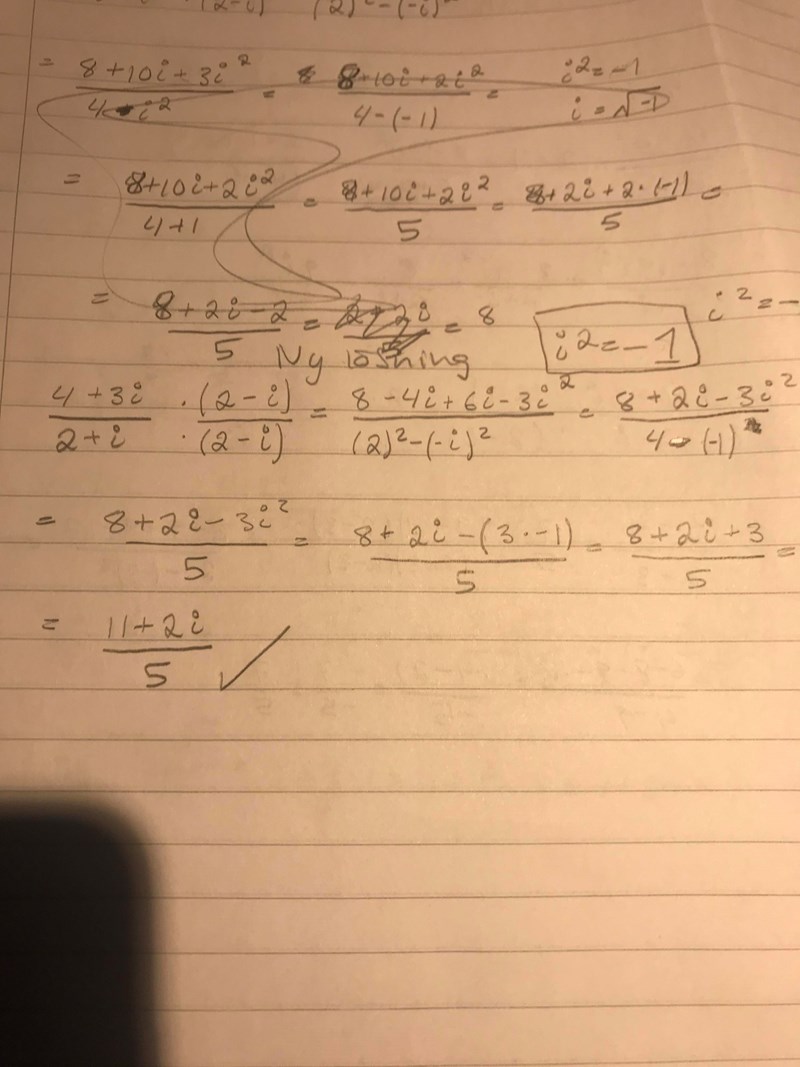 (2-i) (2)² - (-i)²
= 8+10i+3i² / 4-i² = 8+10i+2i² / 4-(-1) = i² = -1
i = √-1
= 8+10i+2i² / 4+1 = 8+10i+2i² / 5 = 8+2i+2·(-1) / 5 =
= 8+2i-2 / 5 = = 8 i²=-1 i² = -
Ny löshing
4+3i / 2+i · (2-i) / · (2-i) = 8-4i+6i-3i² / (2)²-(-i)² = 8+2i-3i² / 4-(-1)
= 8+2i-3i² / 5 = 8+2i-(3·-1) / 5 = 8+2i+3 / 5 =
= 11+2i / 5 ✓